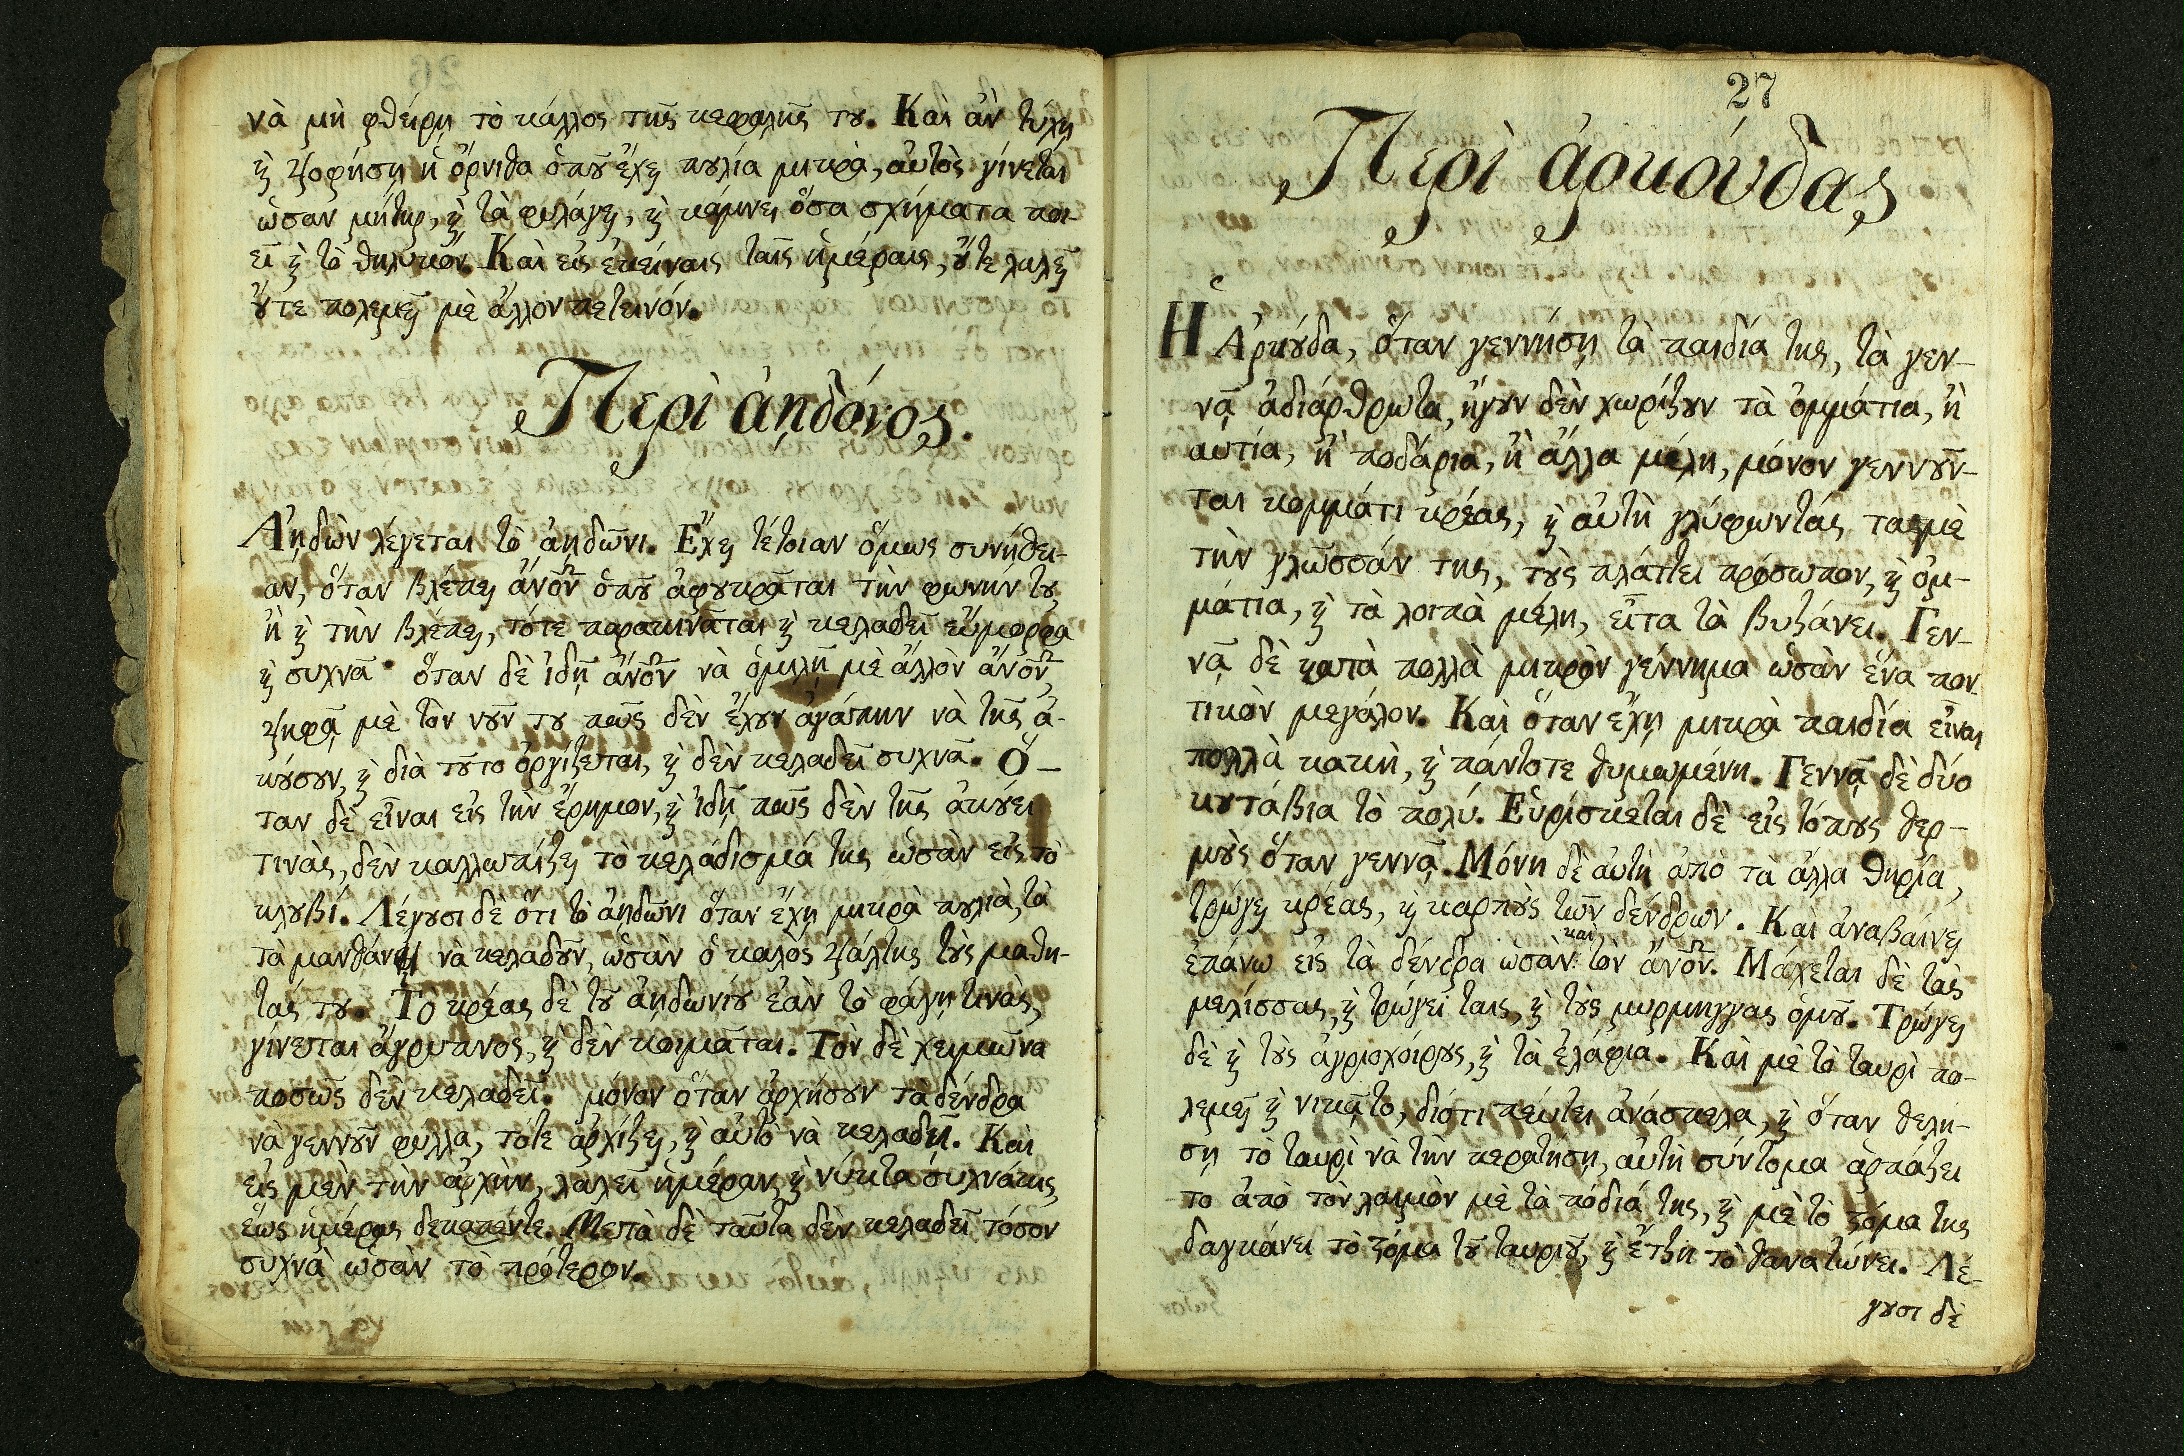 νὰ μὴ φθείρῃ τὸ κάλλος τῆς κεφαλῆς τȣ. Καὶ ἀν τύχῃ
ϗ ψοφήσῃ ἡ ὄρνιθα ὁπȣ̃ ἔχῃ πȣλία μικρὰ, αὐτὸς γίνεται
ὡσαν μήτηρ, ϗ τὰ φυλάγῃ, ϗ κάμνει ὅσα σχήματα ποι-
εῖ ϗ τὸ θηλυκόν. Καὶ εἰς ἐκείναις ταῖς ἡμέραις, ȣ̓́τε λαλεῖ
ȣ̓́τε πολεμεῖ μὲ ἄλλον πετεινόν.
Περὶ ἀηδόνος.
Ἀηδὼν λέγεται τὸ ἀηδῶνι. Ἔχῃ τέτοιαν ὅμως συνήθει-
αν, ὅταν βλέπῃ ἄνο̅ν̅ ὁπȣ̃ ἀφȣκρᾶται τὴν φωνήν τȣ,
ἢ ϗ τὴν βλέπῃ, τότε παρακινᾶται ϗ κελαδεῖ εὔμορφα
ϗ συχνᾶ· ὅταν δὲ ἰδῆ ἄνο̅ν̅ νὰ ὁμιλῆ μὲ ἄλλὸν ἄνο̅ν̅,
ψηφᾶ μὲ τὸν νȣ̃ν τȣ πῶς δὲν ἔχȣν ἀγάπην νὰ τῆς ἀ-
κȣ́σȣν, ϗ διὰ τȣ̃το ὀργίζεται, ϗ δὲν κελαδεῖ συχνᾶ. Ὅ-
ταν δὲ εἶναι εἰς τὴν ἔρημον, ϗ ἰδῆ πῶς δὲν τῆς ἀκȣ́ει
τινὰς, δὲν καλλωπίζῃ τὸ κελάδισμά της ὡσὰν εἰς τὸ
κλȣβί. Λέγȣσι δὲ ὅτι τὸ ἀηδῶνι ὅταν ἔχῃ μικρὰ πȣλιὰ, τὰ
τὰ μανθάνει νὰ κελαδȣ̃ν, ὡσὰν ὁ καλὸς ψάλτης τȣ̀ς μαθη-
τάς τȣ. Τὸ κρέας δὲ τȣ̃ ἀηδωνίȣ ἐὰν τὸ φάγῃ τινὰς,
γίνεται ἄγρυπνος, ϗ δὲν κοιμᾶται. Τὸν δὲ χειμῶνα
ποσῶς δὲν κελαδεῖ. μόνον ὅταν ἀρχήσȣν τὰ δένδρα
νὰ γεννȣ̃ν φυλλα, τότε ἀρχίζῃ, ϗ αὐτὸ νὰ κελαδῆ. Καὶ
εἰς μὲν τὴν ἀρχὴν, λαλεῖ ἡμέραν, ϗ νύκτα συχνάκις,
ἕως ἡμέρας δεκαπέντε. Μετὰ δὲ ταῦτα δὲν κελαδεῖ τόσον
συχνὰ ὡσὰν τὸ πρότερον.
27
Περὶ ἀρκούδας
Ἡ Ἀρκȣ́δα, ὅταν γεννήσῃ τὰ παιδία της, τὰ γεν-
νᾷ ἀδιάρθρωτα, ἤγȣν δὲν χωρίζȣν τὰ ὀμμάτια, ἢ
αὐτία, ἢ ποδάρια, ἢ ἄλλα μέλη, μόνον γεννȣ̃ν-
ται κομμάτι κρέας, ϗ αὐτὴ γλύφωντάς τα μὲ
τὴν γλῶσσάν της, τȣ̀ς πλάττει πρόσωπον, ϗ ὀμ-
μάτια, ϗ τὰ λοιπὰ μέλη, εἶτα τὰ βυζάνει. Γεν-
νᾷ δὲ κατὰ πολλὰ μικρὸν γέννημα ὡσὰν ἕνα πον
τικὸν μεγάλον. Καὶ ὅταν ἔχῃ μικρὰ παιδία εἶναι
πολλὰ κακὴ, ϗ πάντοτε θυμωμένη. Γεννᾷ δὲ δύο
κȣτάβια τὸ πολύ. Εὑρίσκεται δὲ εἰς τόπȣς θερ-
μȣ̀ς ὅταν γεννᾷ. Μόνη δὲ αὐτὴ ἀπὸ τὰ ἄλλα θηρία,
τρώγῃ κρέας, ϗ καρπȣ̀ς τῶν δένδρων. Καὶ ἀναβαίνῃ
ἐπάνω εἰς τὰ δένδρα ὡσὰν καὶ τὸν ἄνο̅ν̅. Μάχεται δὲ τὰς
μελίσσας, ϗ τρώγει ταις, ϗ τȣ̀ς μύρμηγγας ὁμȣ̃. Τρώγῃ
δὲ ϗ τȣ̀ς ἀγριοχοίρȣς, ϗ τὰ ἐλάφια. Καὶ μὲ τὸ ταυρὶ πο-
λεμεῖ ϗ νικᾷ το, διότι πέυτει ἀνάσκελα, ϗ ὅταν θελή-
σῃ τὸ ταυρὶ νὰ τὴν κερατήσῃ, αὐτὴ σύντομα ἁρπάζει
το ἀπὸ τὸν λαιμὸν μὲ τὰ πόδιά της, ϗ μὲ τὸ ϛόμα της
δαγκάνει τὸ ϛόμα τȣ̃ ταυριȣ̃, ϗ ἔτζη τὸ θανατώνει. Λέ-
γȣσι δὲ